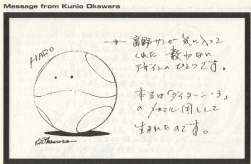 Message from Kunio Okawara
HARO
→ 富野サンが気に入って
くれた 数少ない
デザインのひとつです。
本当は「ダイターン・3」
のメカとして
生まれたのです。
K. Okawara